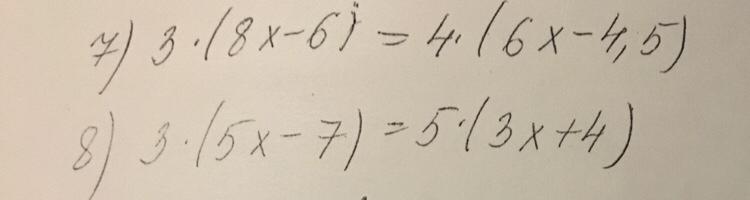 7) 3·(8x-6) = 4·(6x-4,5)
8) 3·(5x-7) = 5·(3x+4)